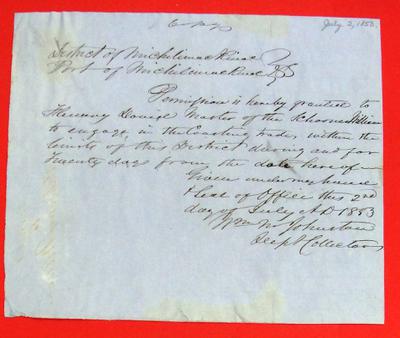 Copy
July 2, 1853.
District of Michilimackinac
Port of Michilimackinac } SS
Permission is hereby granted to
Master of the Schooner William
to engage in the Coasting trade, within the
limits of this District during and for
Twenty days from the date hereof
Given under my hand
& Seal of Office this 2nd
day of July AD 1853
Wm M Johnston
Dept Collector